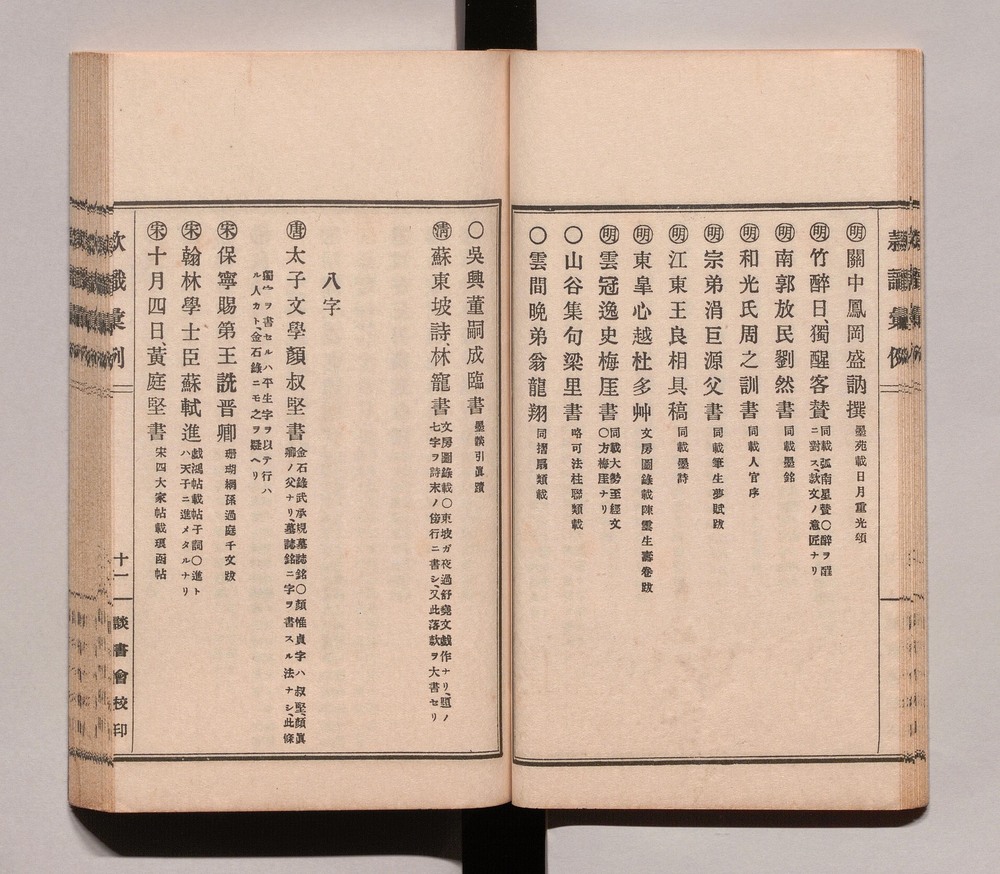 ㊔關中鳳岡盛訥撰 墨苑載日月重光頌
㊔竹醉日、獨醒客贊 同載弧南星贊〇醉ヲ醒
ニ對ス、款文ノ意匠ナリ
㊔南郭放民劉然書 同載墨銘
㊔和光氏周之訓書 同載人官序
㊔宗弟涓巨源父書 同載筆生夢賦跋
㊔江東王良相具稿 同載墨詩
㊔東皐心越杜多艸 文房圖錄載陳靈生壽卷跋
㊔雲冠逸史梅厓書 同載大勢至經文
〇方梅厓ナリ
〇山谷集句梁里書 略可法柱聯類載
〇雲間晩弟翁龍翔 同摺扇類載
〇吳興董嗣成臨書 墨談引眞蹟
㊔蘇東坡詩、林寵書 文房圖錄載〇東坡ガ夜過舒堯文戲作ナリ、題ノ
七字ヲ詩末ノ傍行ニ書シ、又此落款ヲ大書セリ
八字
㊔太子文學顏叔堅書 金石錄武承規墓誌銘〇顏惟貞字ハ叔堅、顏眞
卿ノ父ナリ、墓誌銘ニ字ヲ書スル法ナシ、此條
ヲ書セルハ平生字ヲ以テ行ハ
ル人カト、金石錄ニモ之ヲ疑ヘリ
㊔保寧賜第王詵晋卿 珊瑚網孫過庭千文跋
㊔翰林學士臣蘇軾進 戲鴻帖載帖子詞〇進ト
ハ天子ニ進メタルナリ
㊔十月四日、黃庭堅書 宋四大家帖載頊函帖
款識彙例
十一
談書會校印